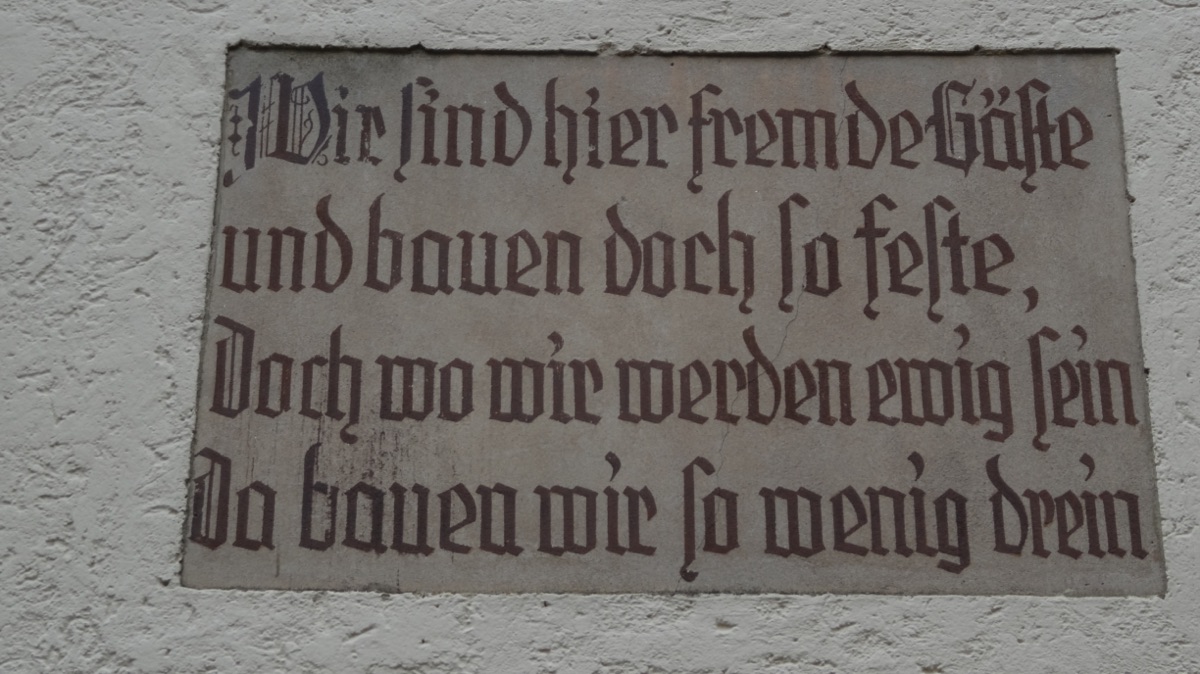 Wir sind hier fremde Gäste
und bauen doch so feste,
Doch wo wir werden ewig sein
Da bauen wir so wenig drein